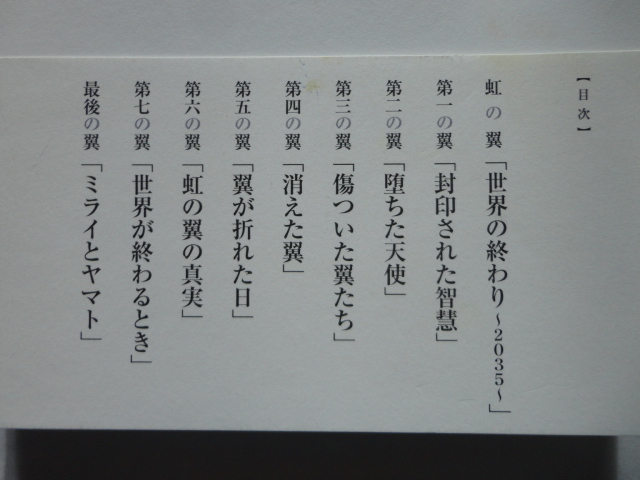 【目次】
虹の翼「世界の終わり~2035~」
第一の翼「封印された智慧」
第二の翼「堕ちた天使」
第三の翼「傷ついた翼たち」
第四の翼「消えた翼」
第五の翼「翼が折れた日」
第六の翼「虹の翼の真実」
第七の翼「世界が終わるとき」
最後の翼「ミライとヤマト」